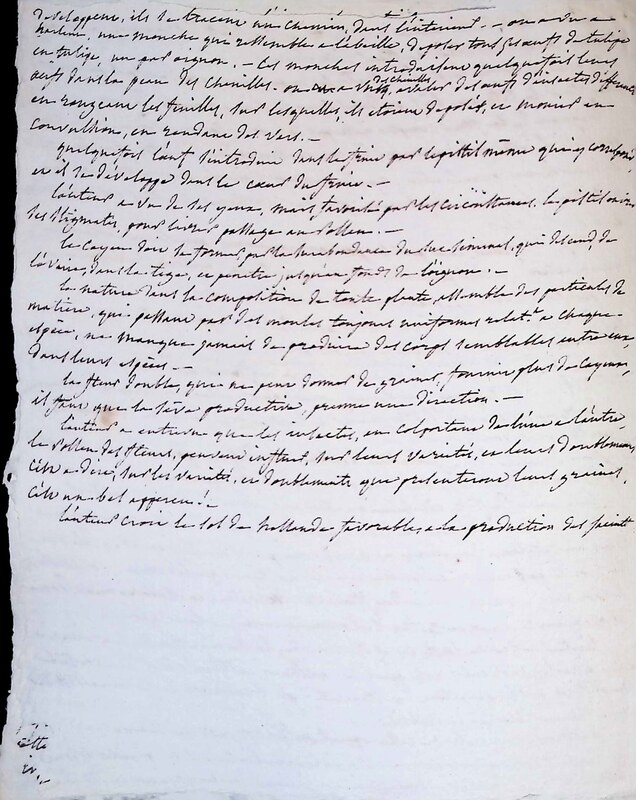 developpent, ils se tracent un chemin, dans l'interieur. — on a vu a
harlem, une mouche qui ressemble a l'abeille, deposer tous ses œufs de tulipe
en tulipe, un par oignon. — Ces mouches introduisent quelquefois leurs
œufs dans la peau des chenilles. on a vu des chenilles, avaler des œufs d'insectes differents
en rongeant les feuilles, sur lesquelles, ils etoient deposés, et mourir en
convulsion, en rendant des vers. —
quelquefois l'œuf s'introduit dans le fruit par le pistil même qui y correspond,
et il se développe dans le cœur du fruit. —
l'auteur a vu de ses yeux, mais favorisé par les circonstances, le pistil ouvrir
ses stigmates, pour livrer passage au pollen. —
le cayeu doit se former par la surabondance du suc seminal, qui descend, de
l'ovaire, dans la tige, et penetre jusqu'au fond de l'oignon. —
la nature dans la composition de toute plante, assemble des particules de
matière, qui passant par des moules toujours uniformes relat.t a chaque
espèce, ne manque jamais de produire des corps semblables entre eux
dans leurs espèces —
la fleur double, qui ne peut donner de graines, fournit plus de cayeux,
il faut que la séve productive, prenne une direction. —
l'auteur a entrevu que les insectes, en colportant de l'une a l'autre
le pollen des fleurs, peuvent influer, sur leurs variétés, et leurs doublements
c'est a dire, sur les variétés, et doublements que presenteront leurs graines.
c'est un bel apperçu! —
l'auteur croit le sol de hollande favorable, a la production des